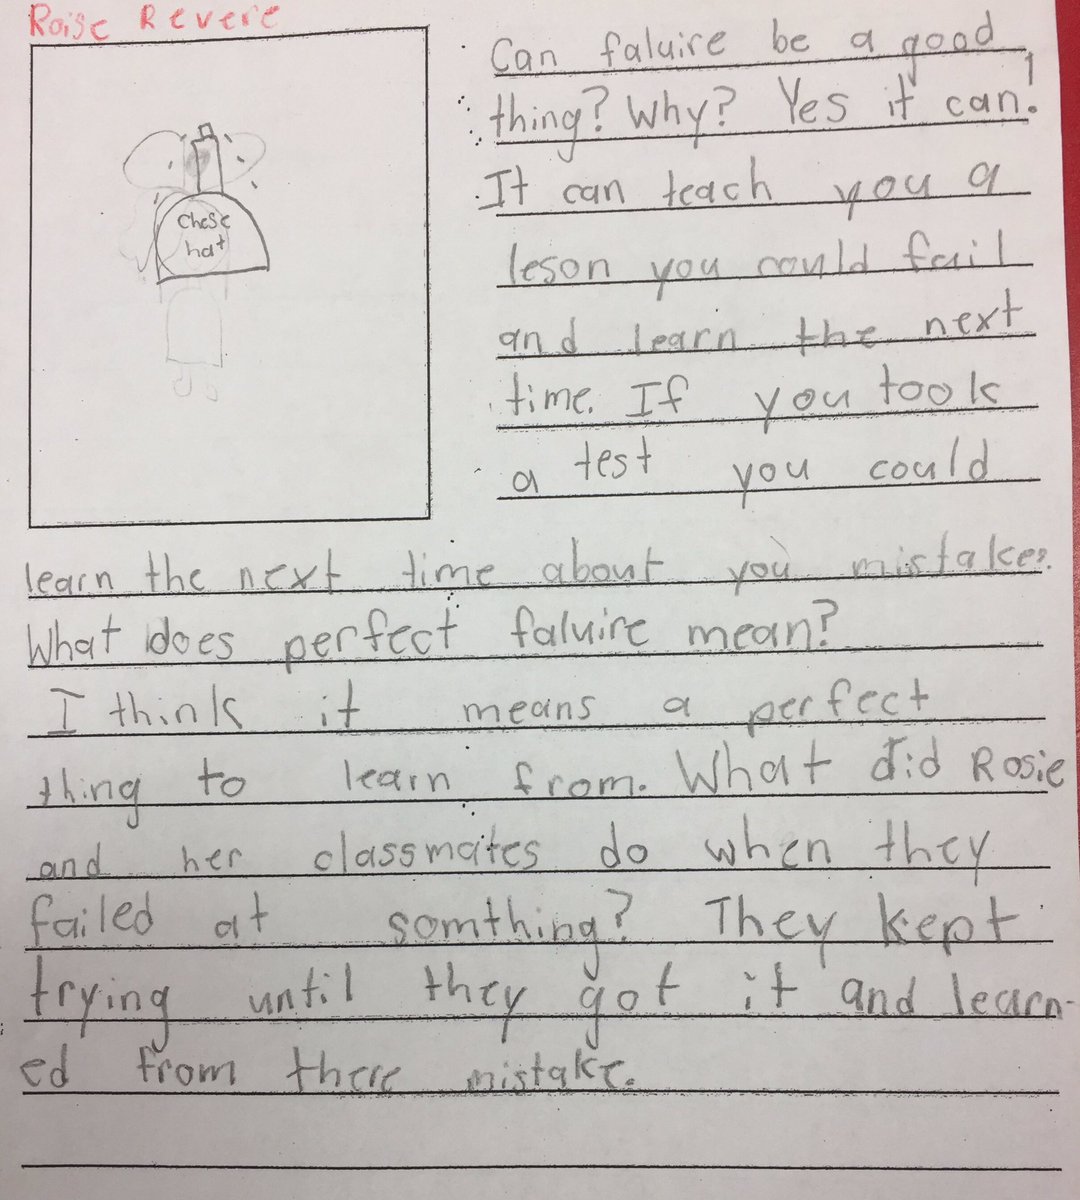 Roise Revere
Chese
hat
Can faluire be a good
thing? Why? Yes it can!
It can teach you a
leson you could fail
and learn the next
time. If you took
a test you could
learn the next time about you mistakes.
What does perfect faluire mean?
I think it means a perfect
thing to learn from. What did Rosie
and her classmates do when they
failed at somthing? They kept
trying until they got it and learn-
ed from there mistake.